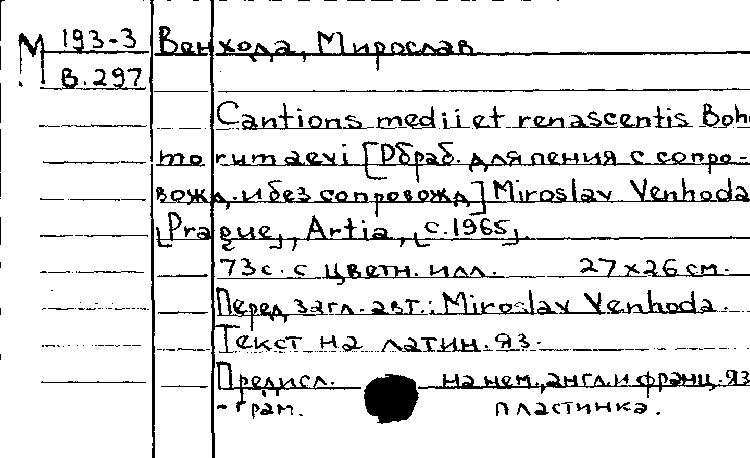 М 193-3 Венхода, Мирослав
В.297
Cantions medii et renascentis Boh
morum aevi [Обраб. для пения с сопро-
вожд. и без сопровожд.] Miroslav Venhoda
[Prague], Artia, [c.1965].
73 с. с цветн. илл. 27x26 см.
Перед загл. авт.: Miroslav Venhoda.
Текст на латин. яз.
Предисл. на нем., англ. и франц. яз
- грам. пластинка.